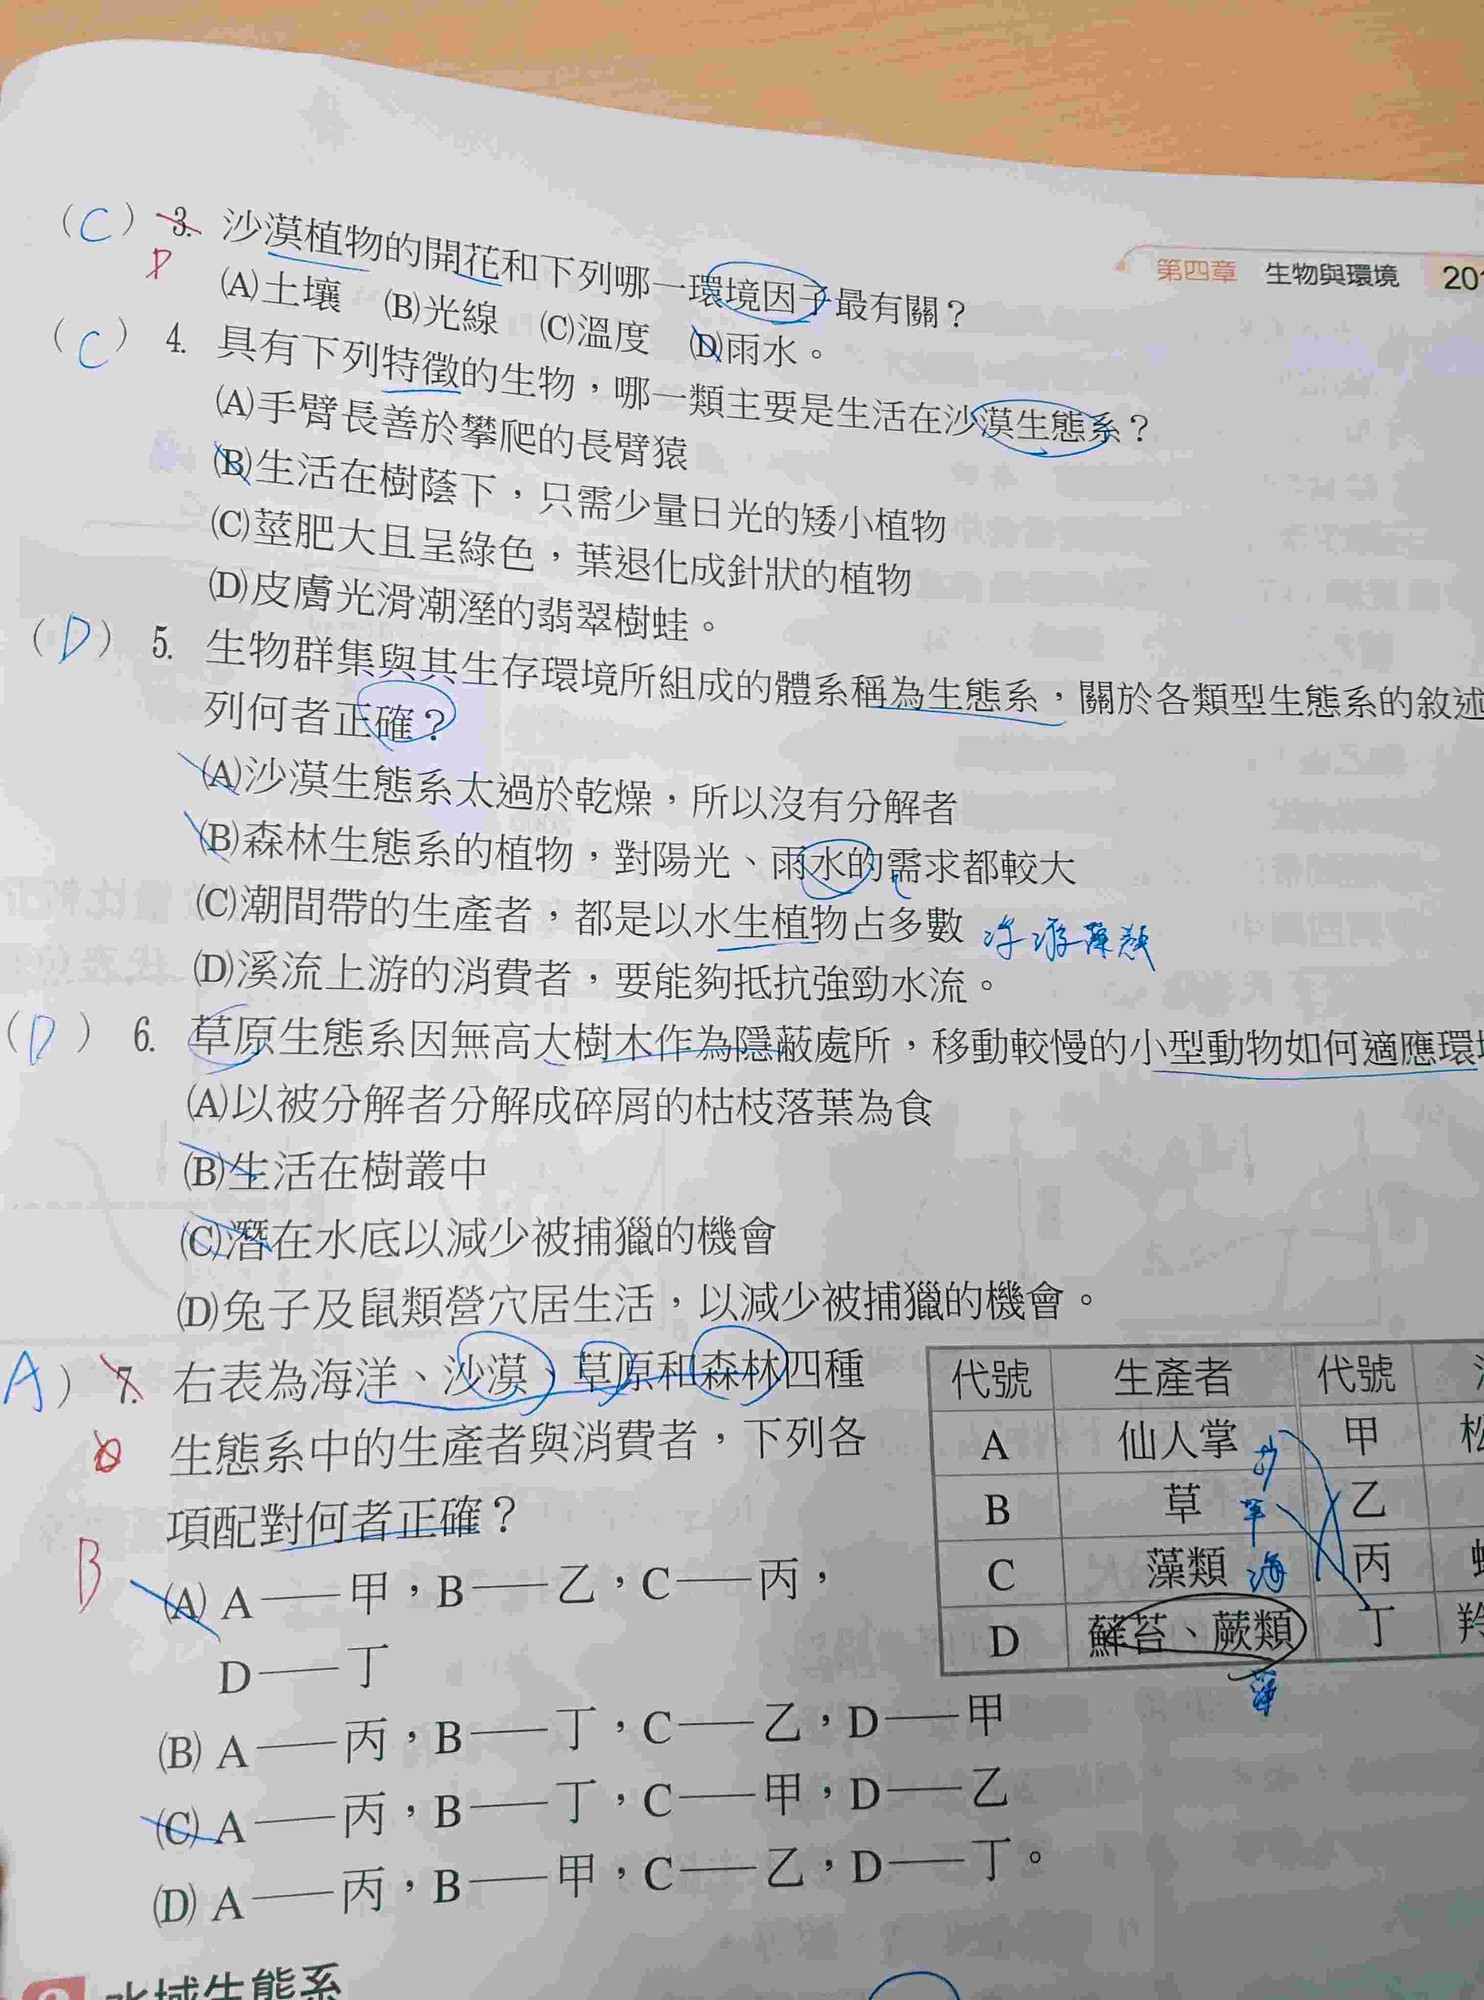 第四章 生物與環境 20
(C) 3. 沙漠植物的開花和下列哪一環境因子最有關？
D
(A)土壤 (B)光線 (C)溫度 (D)雨水。
(C) 4. 具有下列特徵的生物，哪一類主要是生活在沙漠生態系？
(A)手臂長善於攀爬的長臂猿
(B)生活在樹蔭下，只需少量日光的矮小植物
(C)莖肥大且呈綠色，葉退化成針狀的植物
(D)皮膚光滑潮溼的翡翠樹蛙。
(D) 5. 生物群集與其生存環境所組成的體系稱為生態系，關於各類型生態系的敘述
列何者正確？
(A)沙漠生態系太過於乾燥，所以沒有分解者
(B)森林生態系的植物，對陽光、雨水的需求都較大
(C)潮間帶的生產者，都是以水生植物占多數 浮游藻類
(D)溪流上游的消費者，要能夠抵抗強勁水流。
(D) 6. 草原生態系因無高大樹木作為隱蔽處所，移動較慢的小型動物如何適應環
(A)以被分解者分解成碎屑的枯枝落葉為食
(B)生活在樹叢中
(C)潛在水底以減少被捕獵的機會
(D)兔子及鼠類營穴居生活，以減少被捕獵的機會。
A) 7. 右表為海洋、沙漠、草原和森林四種
生態系中的生產者與消費者，下列各
項配對何者正確？
B
(A) A——甲，B——乙，C——丙，
D——丁
(B) A——丙，B——丁，C——乙，D——甲
(C) A——丙，B——丁，C——甲，D——乙
(D) A——丙，B——甲，C——乙，D——丁。
代號 生產者 代號
A 仙人掌 沙 甲 松
B 草 草 乙
C 藻類 海 丙
D 蘚苔、蕨類 丁 羚
水域生態系